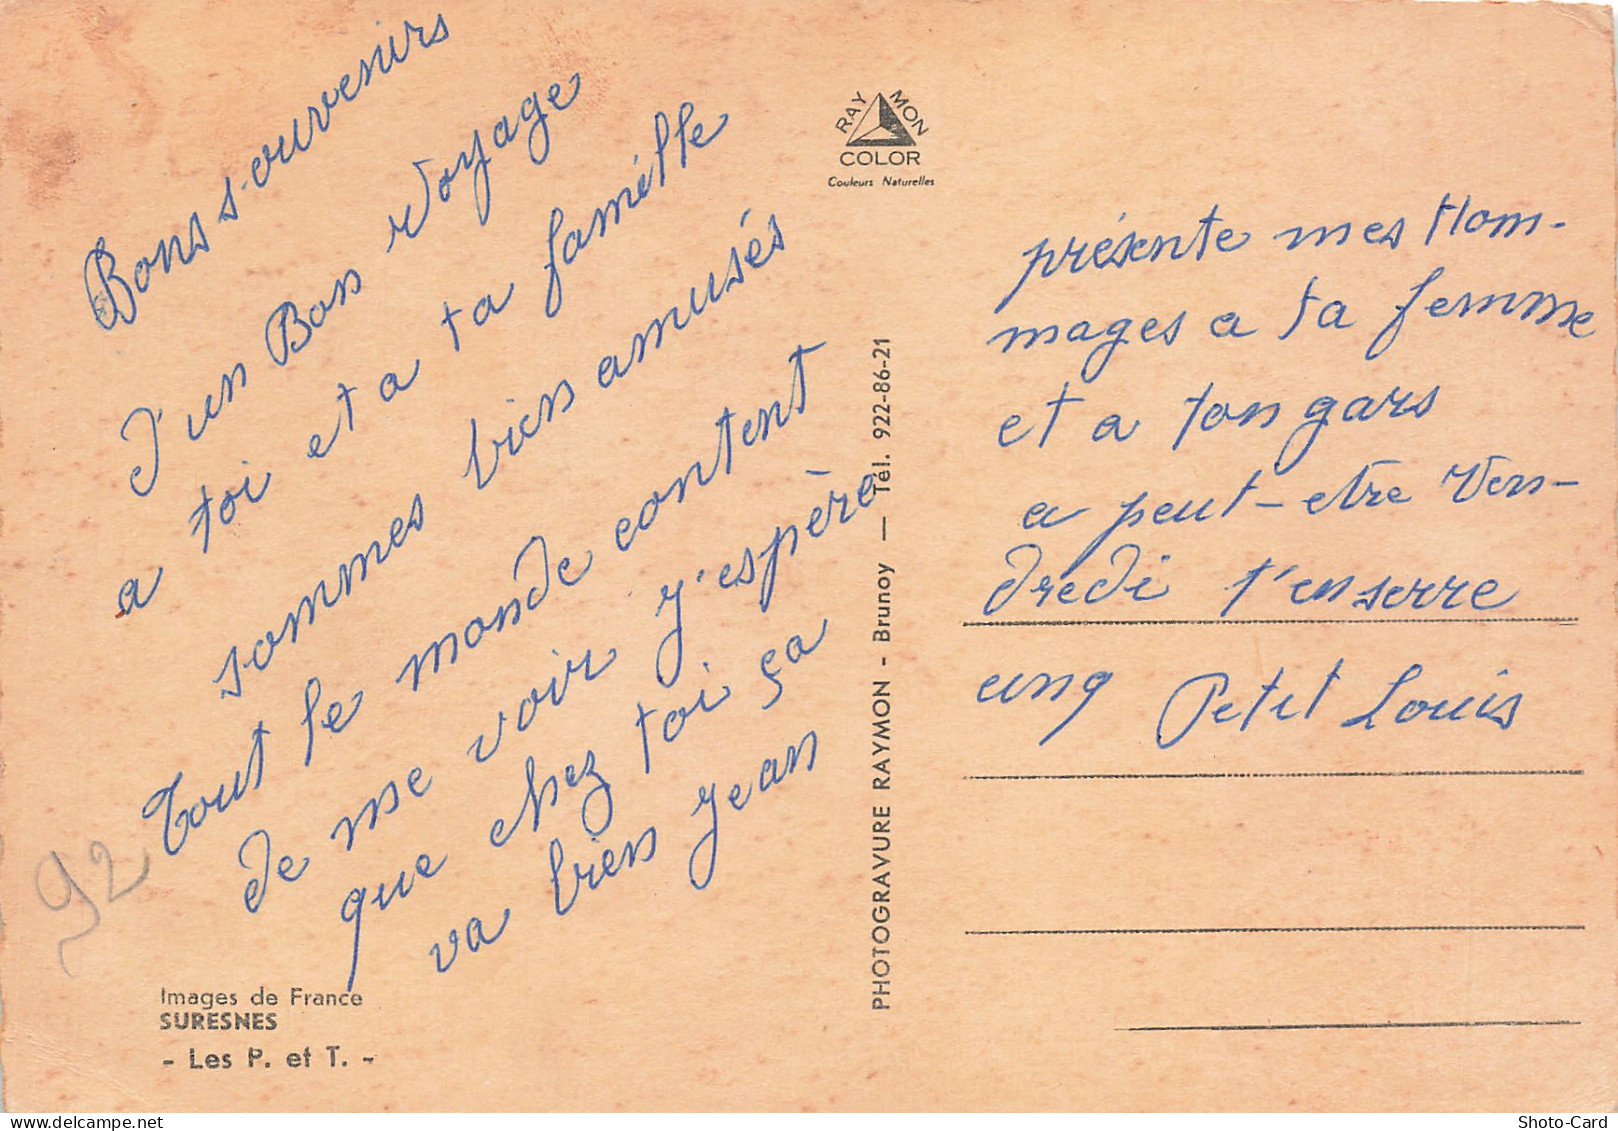 Bons souvenirs
d'un Bon Voyage
a toi et a ta famille
sommes bien amusés
Tout le monde content
de me voir j'espère
que chez toi ça
va bien Jean
92
Images de France
SURESNES
- Les P. et T. -
PHOTOGRAVURE RAYMON - Brunoy — Tél. 922-86-21
RAYMON
COLOR
Couleurs Naturelles
présente mes Hom-
mages a ta femme
et a ton gars
a peut-etre Ven-
dredi t'en serre
cinq Petit Louis
Shoto-Card